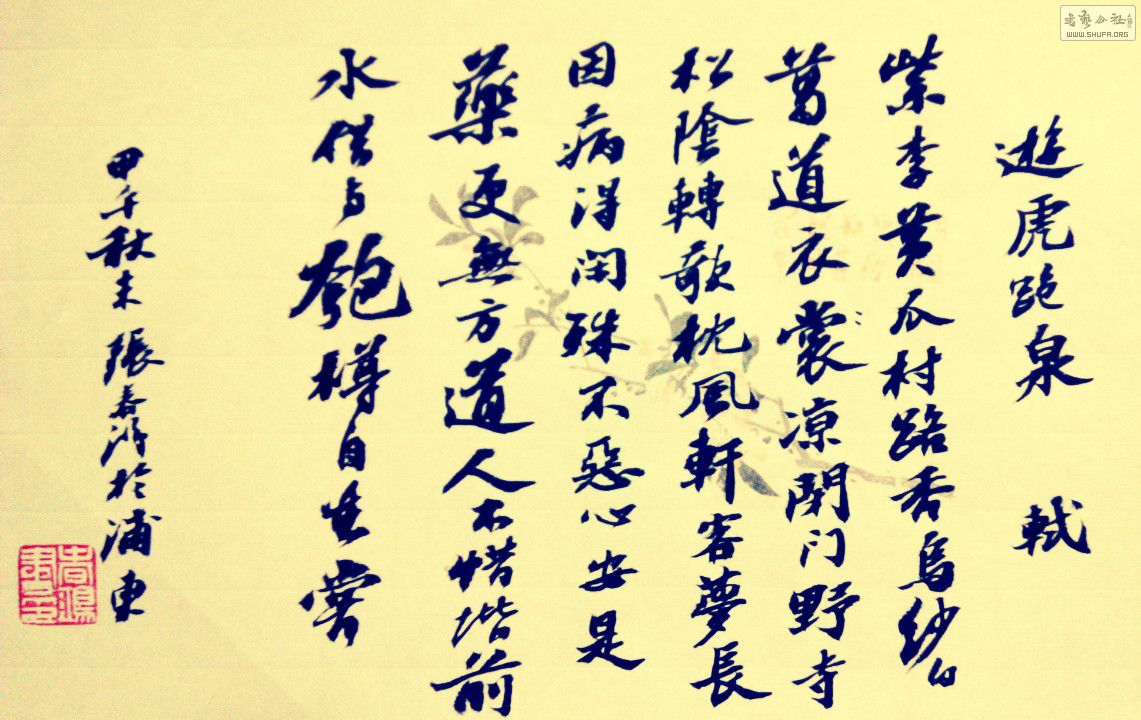 遊虎跑泉 軾
紫李黄瓜村路香烏紗白
葛道衣裳凉閉门野寺
松陰轉欹枕風軒客夢長
因病得閑殊不惡心安是
藥更無方道人不惜堦前
水借与匏樽自在嘗
甲午秋末張春鴻於浦東
書藝公社
WWW.SHUFA.ORG